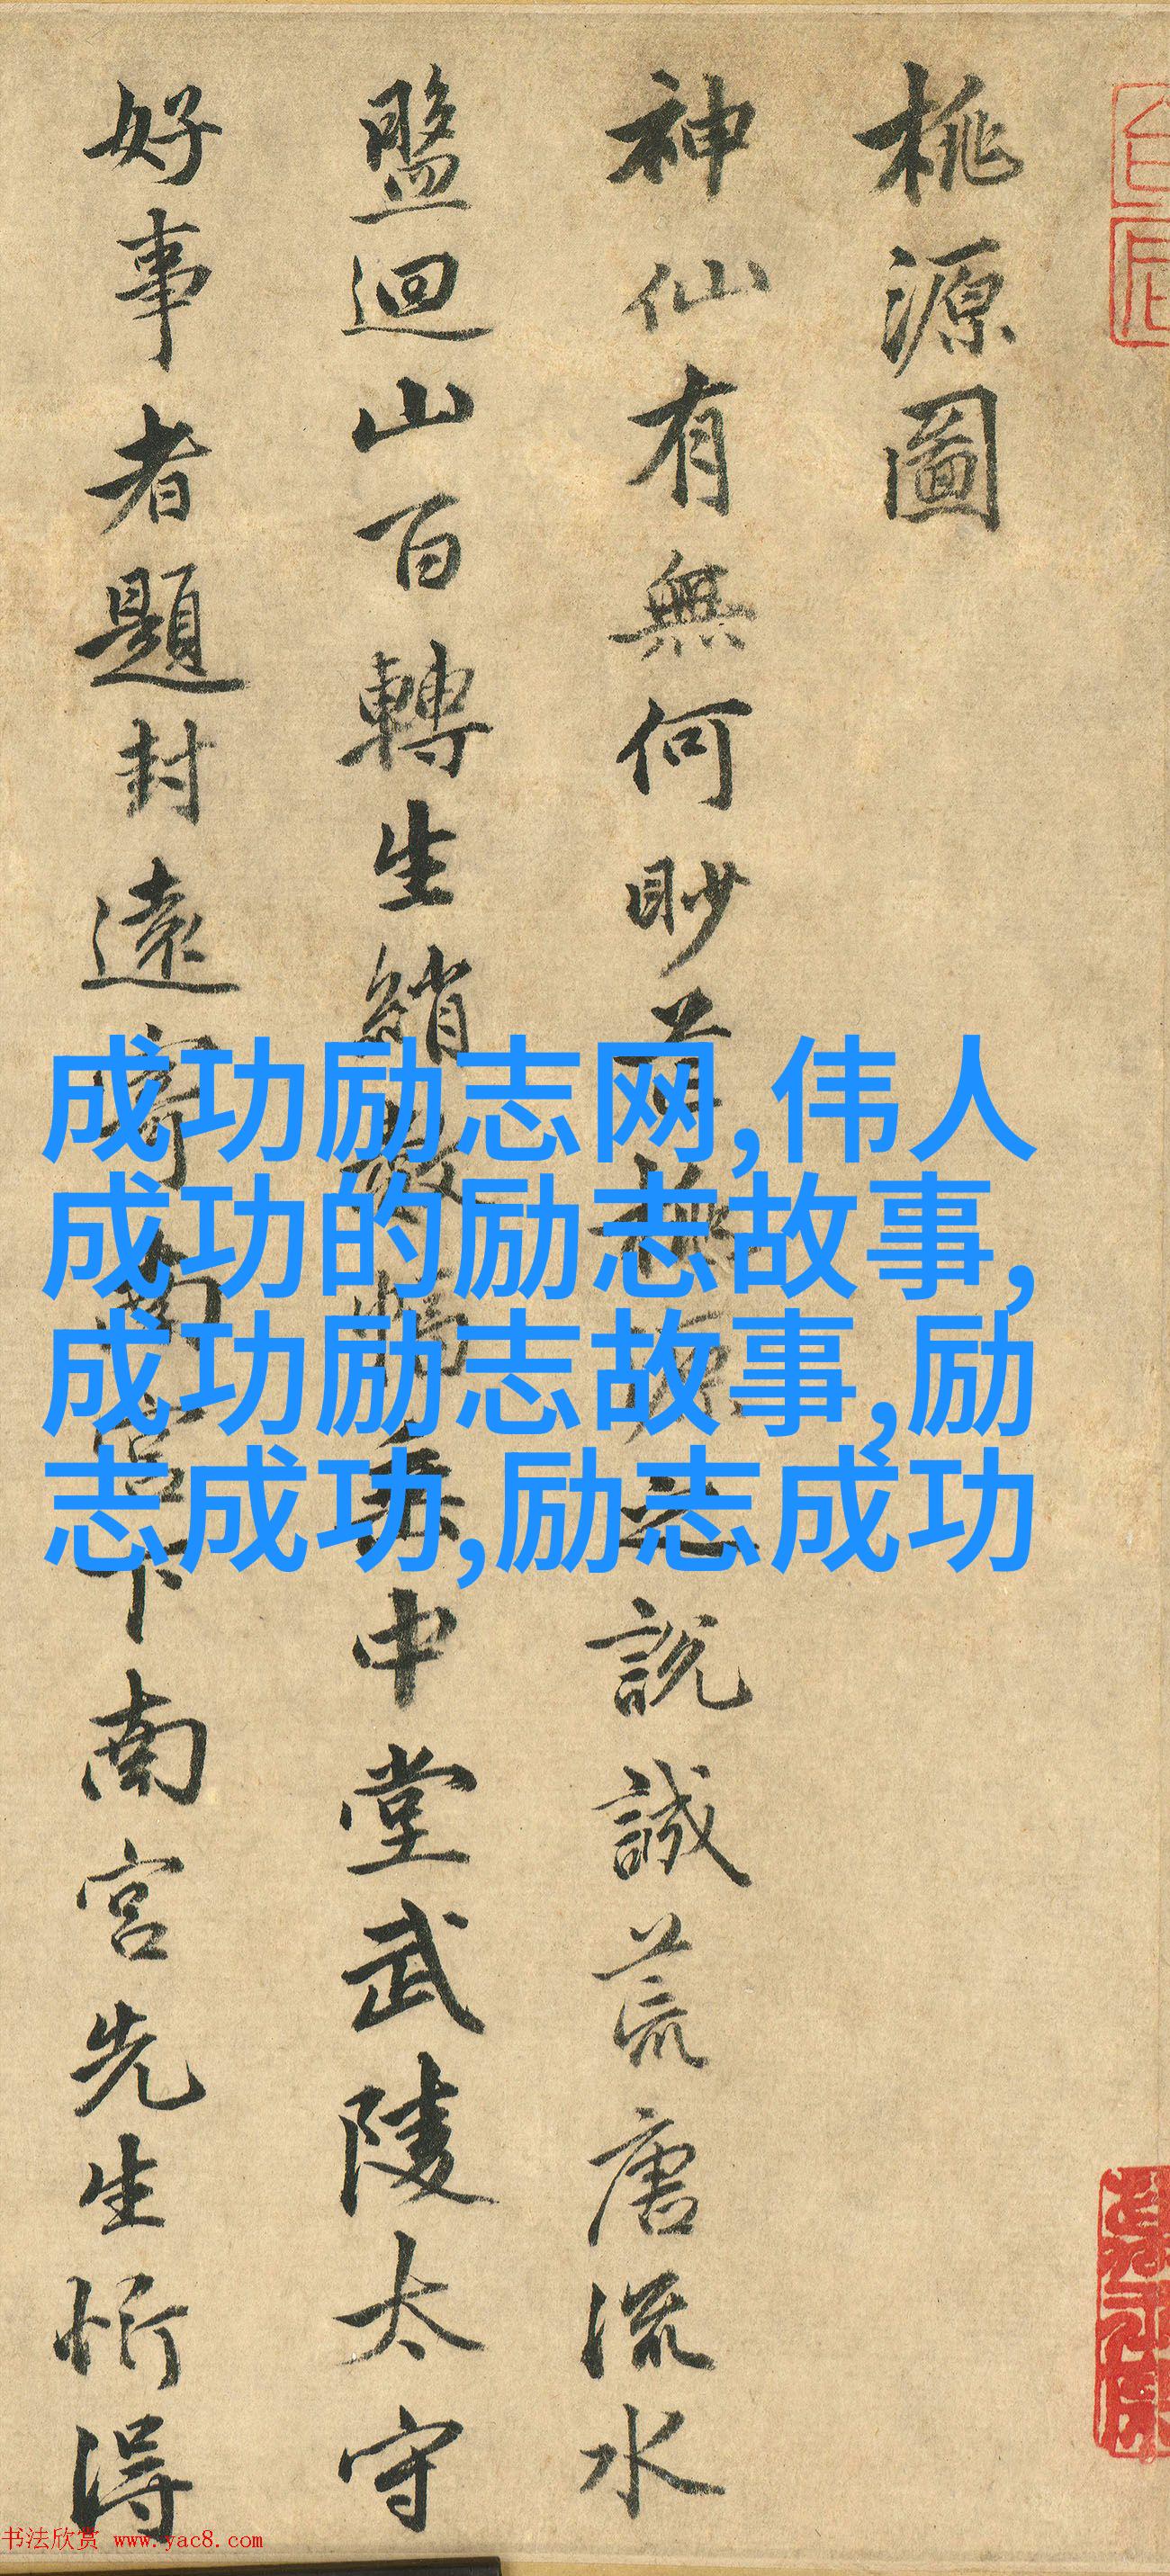 桃源圖
神仙有無何眇芒桃源之說誠荒唐流水
盤迴山百轉生綃數幅垂中堂武陵太守
好事者題封遠寄南宮下南宮先生忻得
成功励志网,伟人
成功的励志故事,
成功励志故事,励
志成功,励志成功
书法欣赏 www.yac8.com